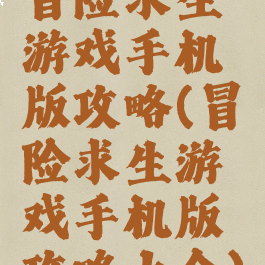 冒险求生
游戏手机
版攻略(冒
险求生游
戏手机版
攻略大全)